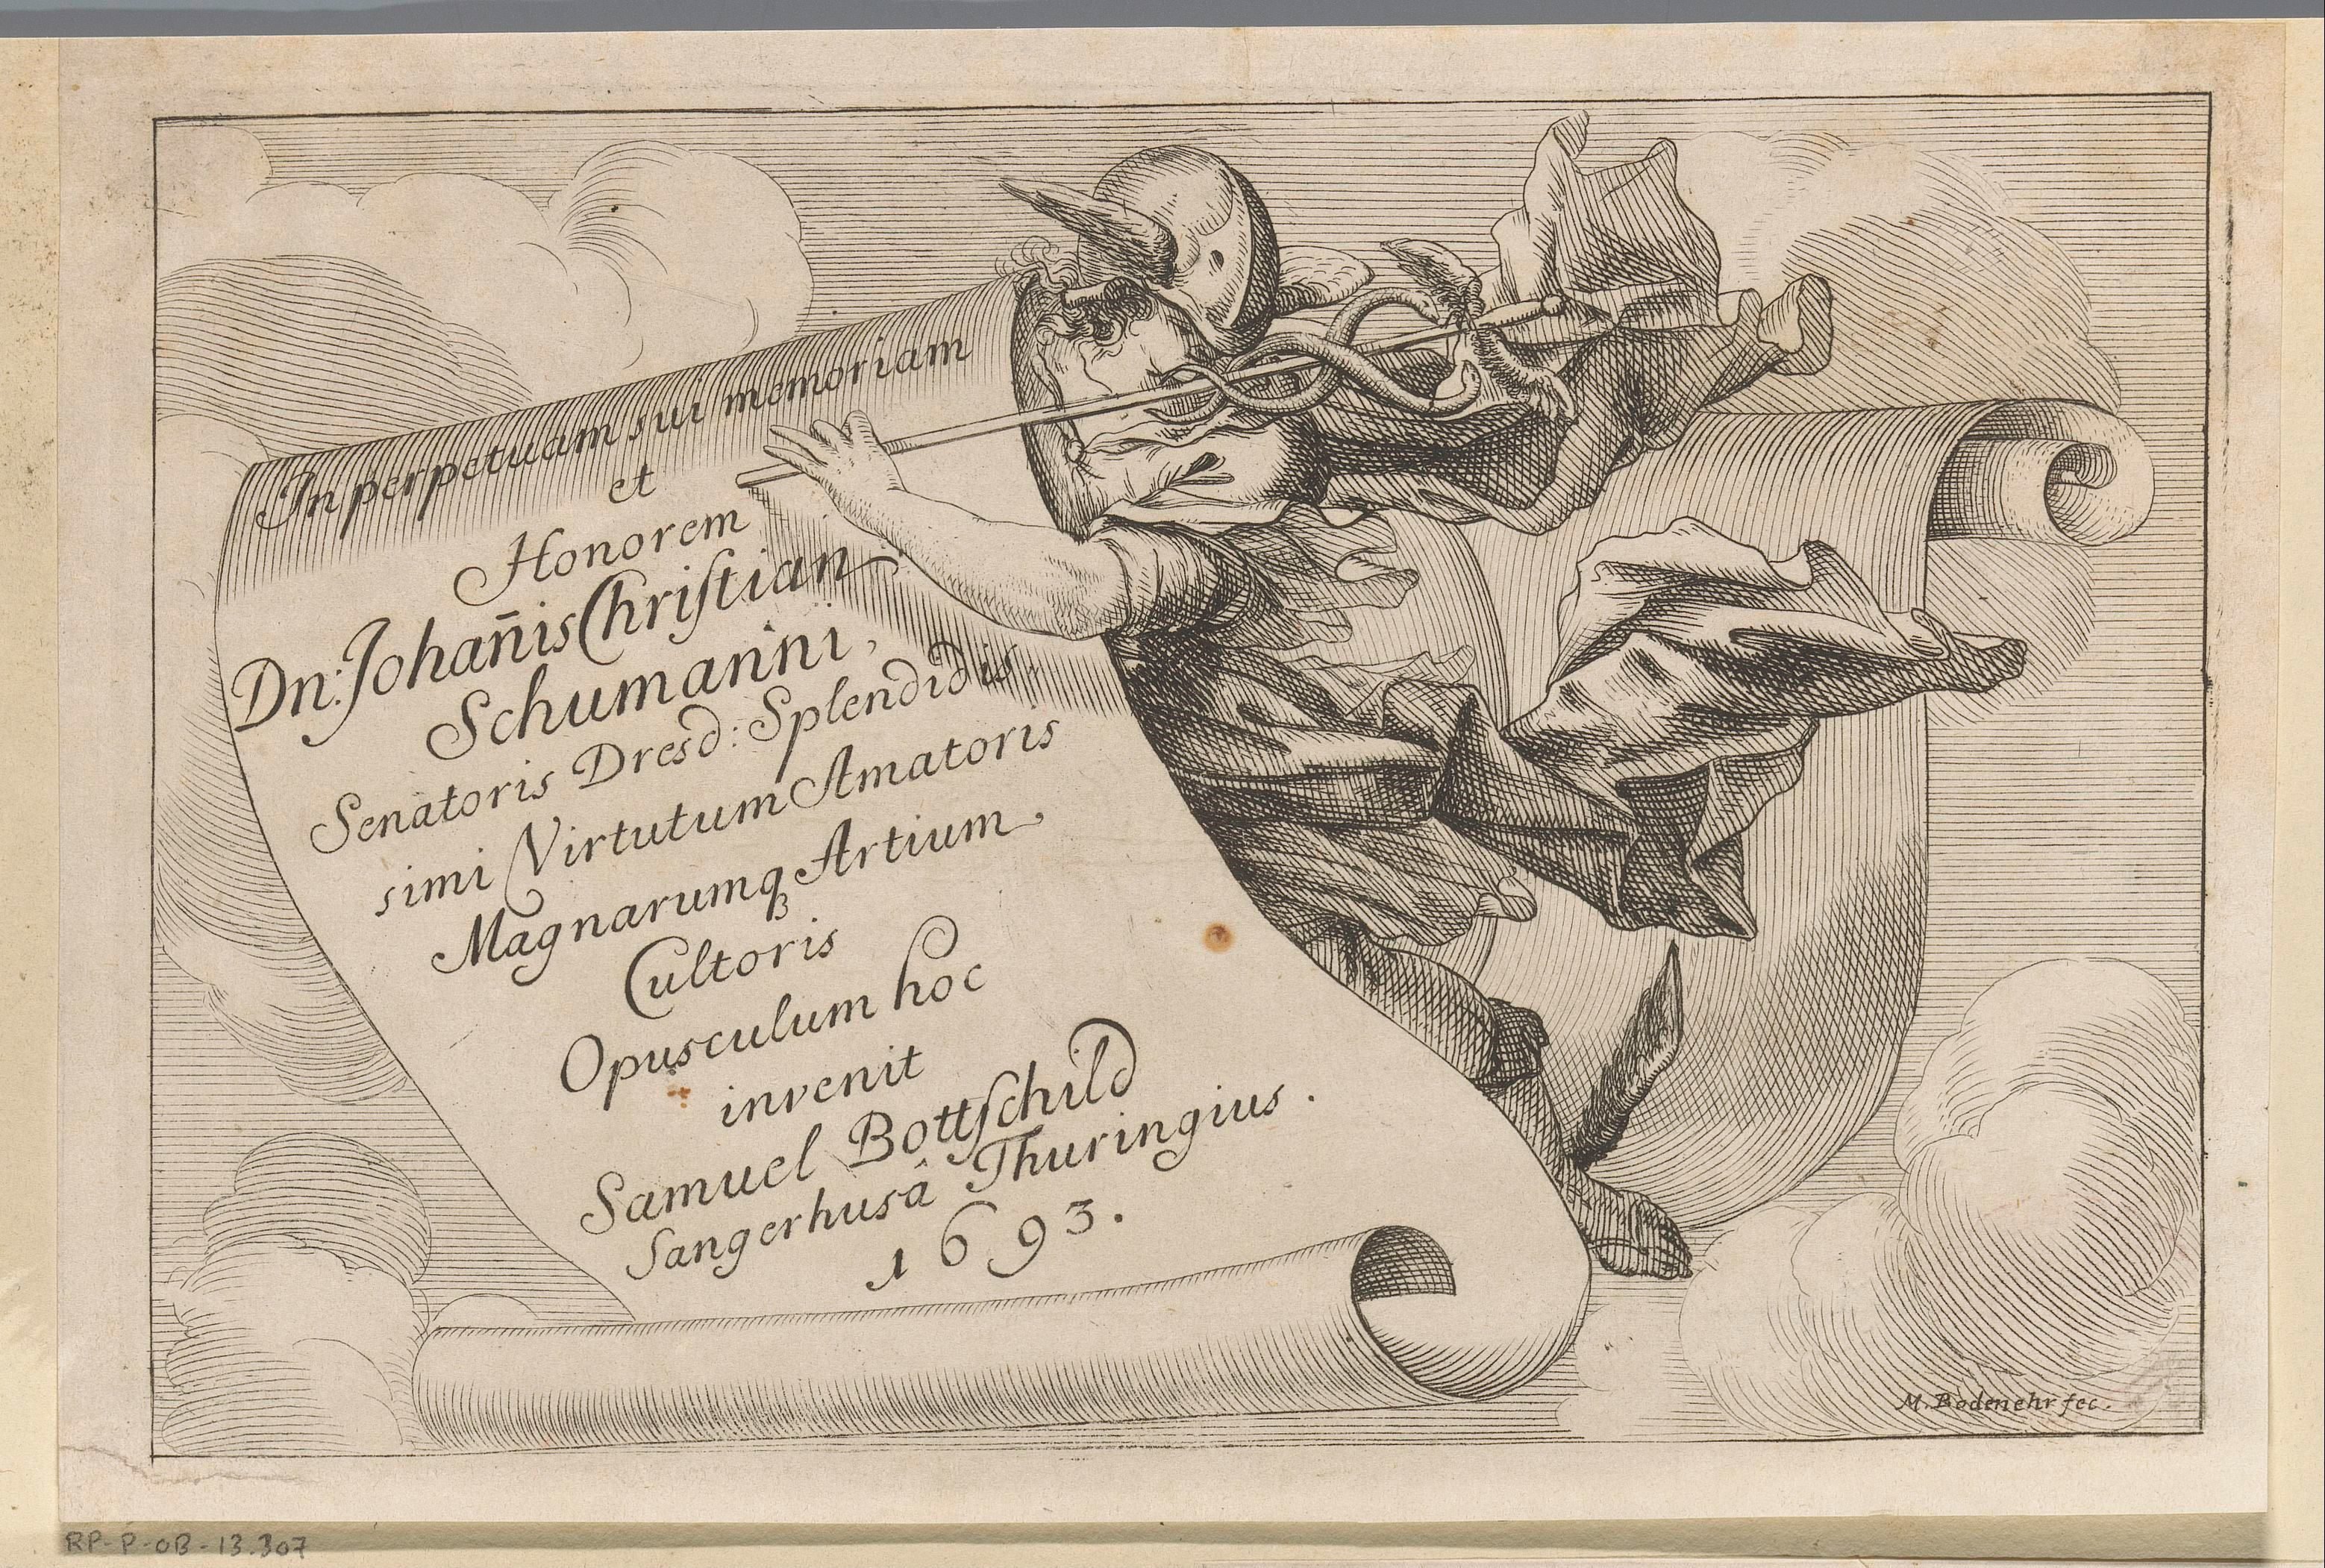 In perpetuam sui memoriam
et
Honorem
Dn: Johan̄is Chriſtian
Schumanni,
Senatoris Dresd: Splendidis
simi Virtutum Amatoris
Magnarumqꝫ Artium
Cultoris
Opusculum hoc
invenit
Samuel Bottſchild
Sangerhusâ Thuringius.
1693.
M. Bodenehr fec.
RP-P-OB-13.307